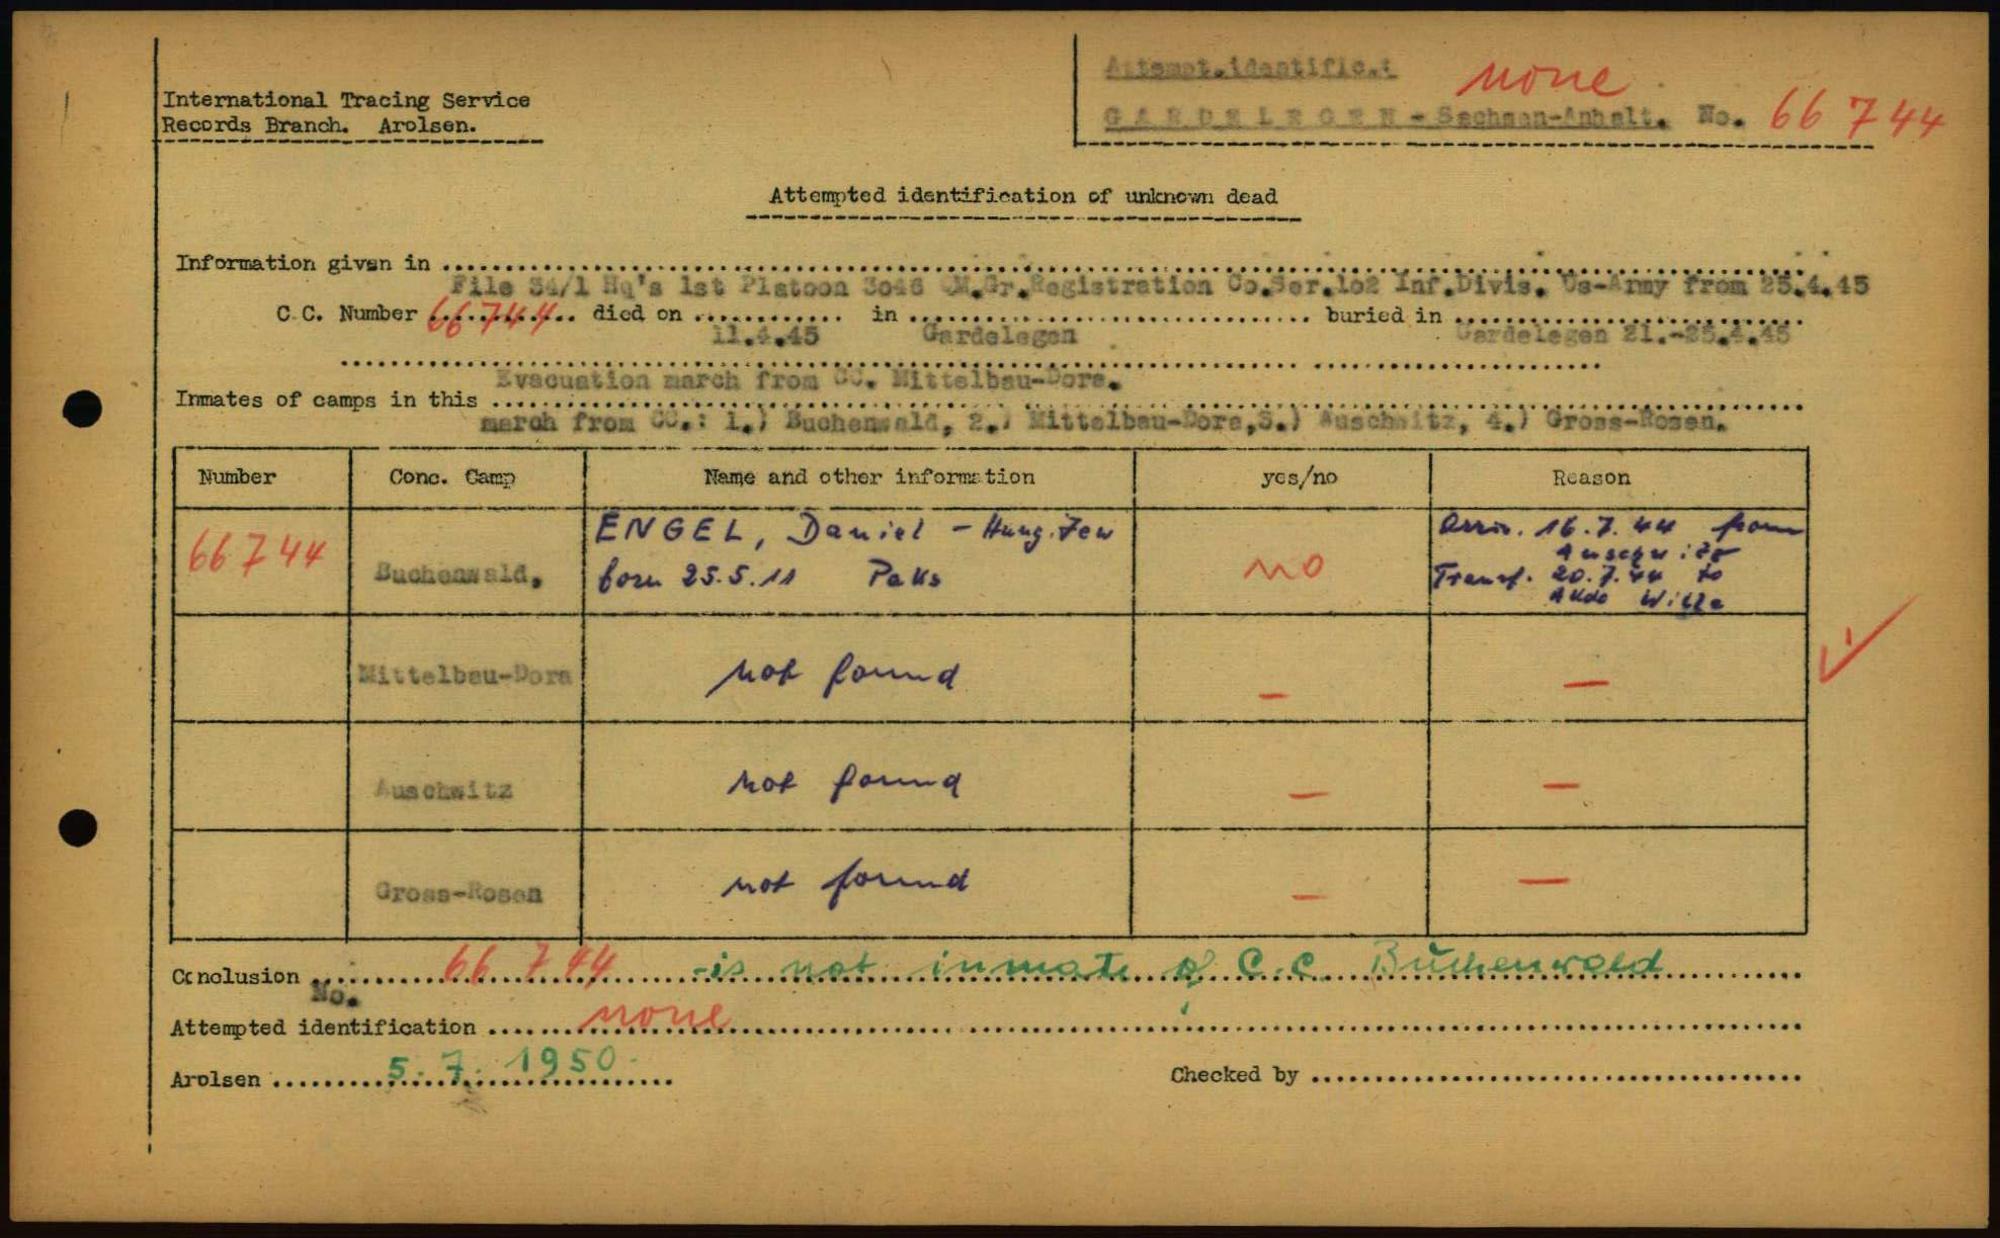 International Tracing Service
Records Branch. Arolsen.
Attempt.identific.:
none
GARDELEGEN - Sachsen-Anhalt. No. 66 744
Attempted identification of unknown dead
Information given in
File 34/1 Hq's 1st Platoon 3o46 QM.Gr.Registration Co.Ser.1o2 Inf.Divis. Us-Army from 25.4.45
C.C. Number 66 744 died on 11.4.45 in Gardelegen buried in Gardelegen 21.-25.4.45
Evacuation march from CC. Mittelbau-Dora.
Inmates of camps in this
march from CC.: 1.) Buchenwald, 2.) Mittelbau-Dora,3.) Auschwitz, 4.) Gross-Rosen.
Number Conc. Camp Name and other information yes/no Reason
66 744 Buchenwald. ENGEL, Daniel - Hung. Jew
born 25.5.11 Paks
no
Arriv. 16.7.44 from
Auschwitz
Transf. 20.7.44 to
Akdo Wille
Mittelbau-Dora not found — —
Auschwitz not found — —
Gross-Rosen not found — —
Conclusion No. 66 744 - is not inmate of C.C. Buchenwald
Attempted identification none
Arolsen 5. 7. 1950.
Checked by